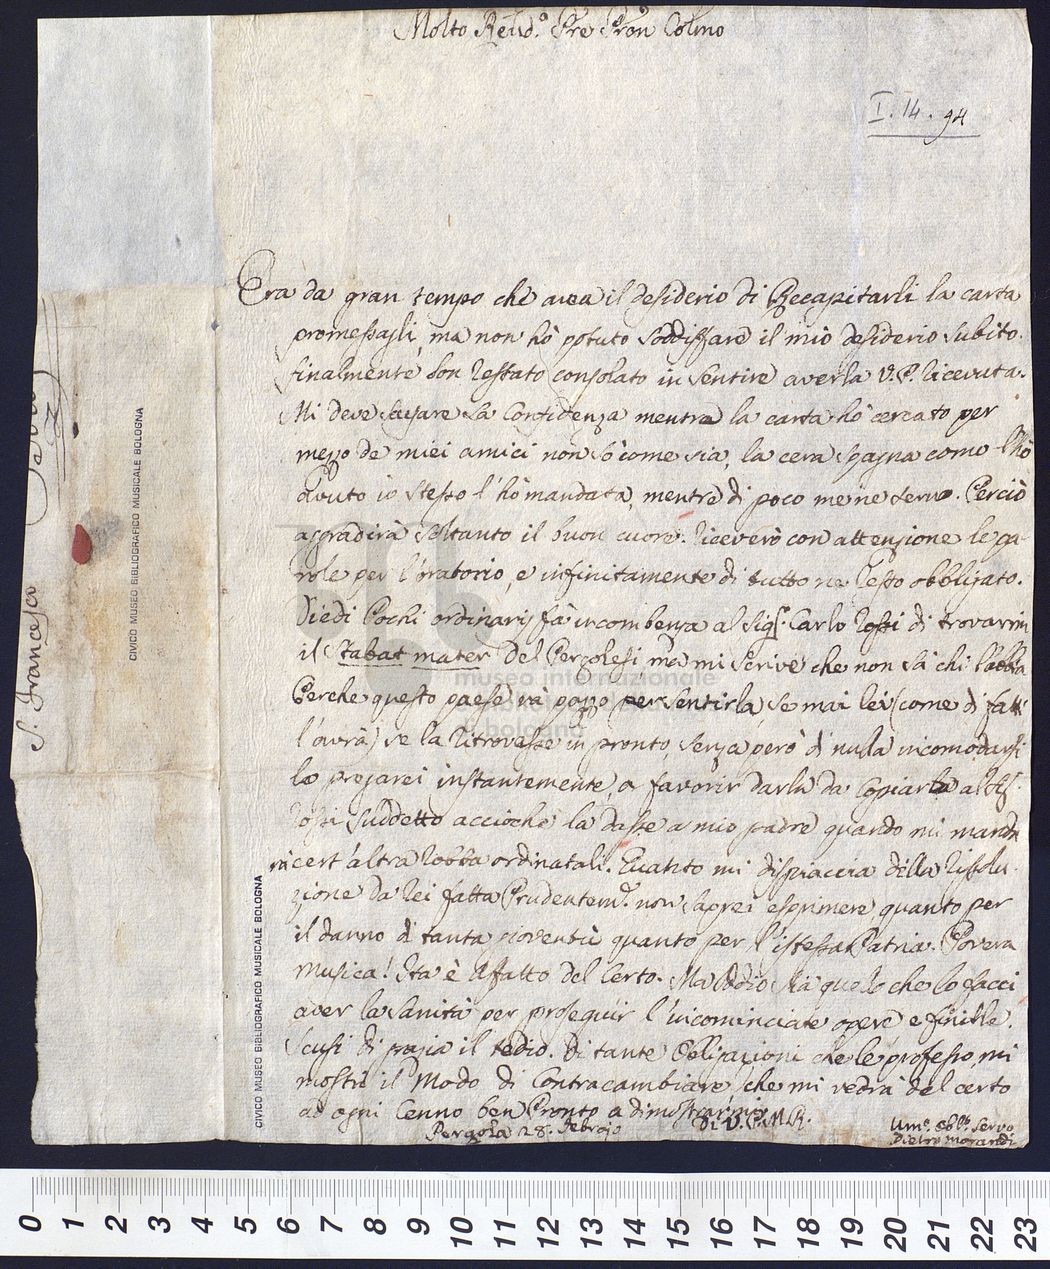 Molto Reud.º Pre Pron Colmo
I. 14. 94
Era da gran tempo che avea il desiderio di Recapitarli la carta
promessagli, ma non hò potuto soddisfare il mio desiderio subito.
finalmente son restato consolato in sentire averla V. P. ricevuta.
Mi deve scusare la Confidenza mentre la carta hò cercato per
mezo de miei amici non sò come sia, la cera spagna como l'hò
avuto io stesso l'hò mandata, mentre di poco me ne servo. Perciò
aggradirà soltanto il buon cuore. Riceverò con attenzione le pa-
role per l'oratorio, e infinitamente di tutto ne resto obbligato.
Diedi Pochi ordinarj fà incombenza al Sigr. Carlo Rossi di trovarmi
il Stabat mater del Pergolesi mà mi scrive che non sà chi l'abbia
Perche questo paese và pazzo per sentirla, se mai lei (come di fatti
l'avrà) se la ritrovasse in pronto, senza però di nulla incomodarsi
lo pregarei instantemente, a favorir darla da Copiarla al Sig.
Rossi suddetto accioche la dasse a mio padre quando mi manda
cert'altra robba ordinatali. Quanto mi dispiaccia della risolu-
zione da lei fatta Prudentem.e non saprei esprimere quanto per
il danno di tanta gioventù quanto per l'istessa Patria. Povera
Musica! Ita è Affatto del Certo. Ma Iddio sia quelo che lo facci
aver la sanità per proseguir l'incominciate opere e finirle.
Scusi di grazia il tedio. Di tante Obligazioni che le professo mi
mostri il Modo di Contracambiare, che mi vedrà del certo
ad ogni Cenno ben Pronto a dimostrarmi
Di V. P. M. R.
Pergola 28. Febrajo
Um.º obb.º Servo
Pietro Morandi
S. Francesco
CIVICO MUSEO BIBLIOGRAFICO MUSICALE BOLOGNA
CIVICO MUSEO BIBLIOGRAFICO MUSICALE BOLOGNA
museo internazionale
di bologna
0 1 2 3 4 5 6 7 8 9 10 11 12 13 14 15 16 17 18 19 20 21 22 23